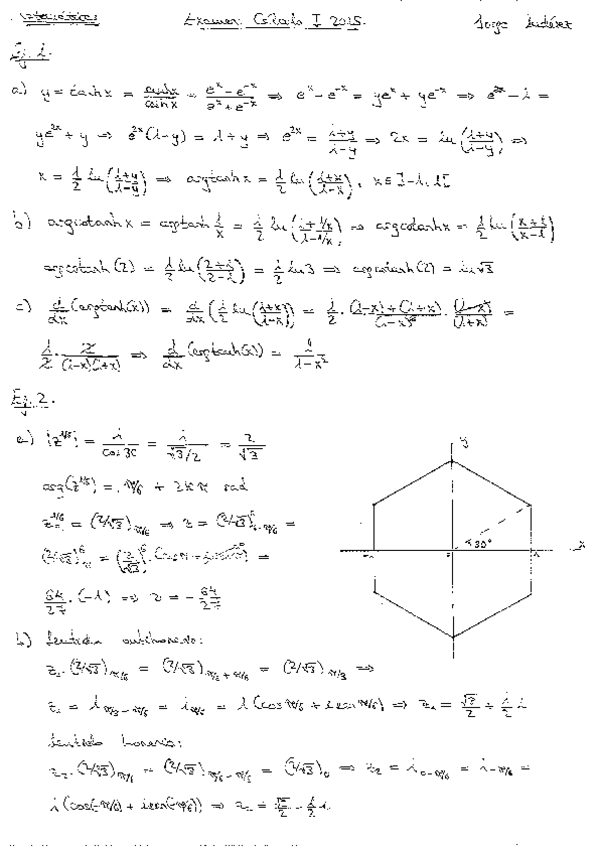 Examen Cálculo I 2015.
Ej. 1.
a) y = tanh x = senhx/coshx = (e^x − e^-x)/(e^x + e^-x) ⇒ e^x − e^-x = ye^x + ye^-x ⇒ e^2x − 1 =
ye^2x + y ⇒ e^2x(1−y) = 1+y ⇒ e^2x = (1+y)/(1−y) ⇒ 2x = ln((1+y)/(1−y)) ⇒
x = 1/2 ln((1+y)/(1−y)) ⇒ argtanh x = 1/2 ln((1+x)/(1−x)), x∈]-1,1[
b) argcotanh x = argtanh 1/x = 1/2 ln((1+1/x)/(1−1/x)) ⇒ argcotanh x = 1/2 ln((x+1)/(x−1))
argcotanh(2) = 1/2 ln((2+1)/(2−1)) = 1/2 ln3 ⇒ argcotanh(2) = ln√3
c) d/dx (argtanh(x)) = d/dx (1/2 ln((1+x)/(1−x))) = 1/2 · ((1−x)+(1+x))/(1−x)^2 · (1−x)/(1+x) =
1/2 · 2/((1−x)(1+x)) ⇒ d/dx (argtanh(x)) = 1/(1−x^2)
Ej. 2.
a) |z^1/6| = 1/cos30 = 1/(√3/2) = 2/√3
arg(z^1/6) = π/6 + 2kπ rad
= (2/√3)π/6 ⇒ z = (2/√3)^6 6·π/6 =
(2/√3)^6 π = (2/√3)^6 · (cosπ + isenπ) =
64/27 · (-1) ⇒ z = − 64/27
y
30°
x
b) Sentido antihorario:
z1·(2/√3)π/6 = (2/√3)π/6+π/6 = (2/√3)π/3 ⇒
z1 = 1π/3−π/6 = 1π/6 = 1(cosπ/6 + isenπ/6) ⇒ z1 = √3/2 + 1/2 i
Sentido horario:
z2·(2/√3)π/6 = (2/√3)π/6−π/6 = (2/√3)0 ⇒ z2 = 1 0−π/6 = 1−π/6 =
1(cos(-π/6) + isen(-π/6)) ⇒ z2 = √3/2 − 1/2 i